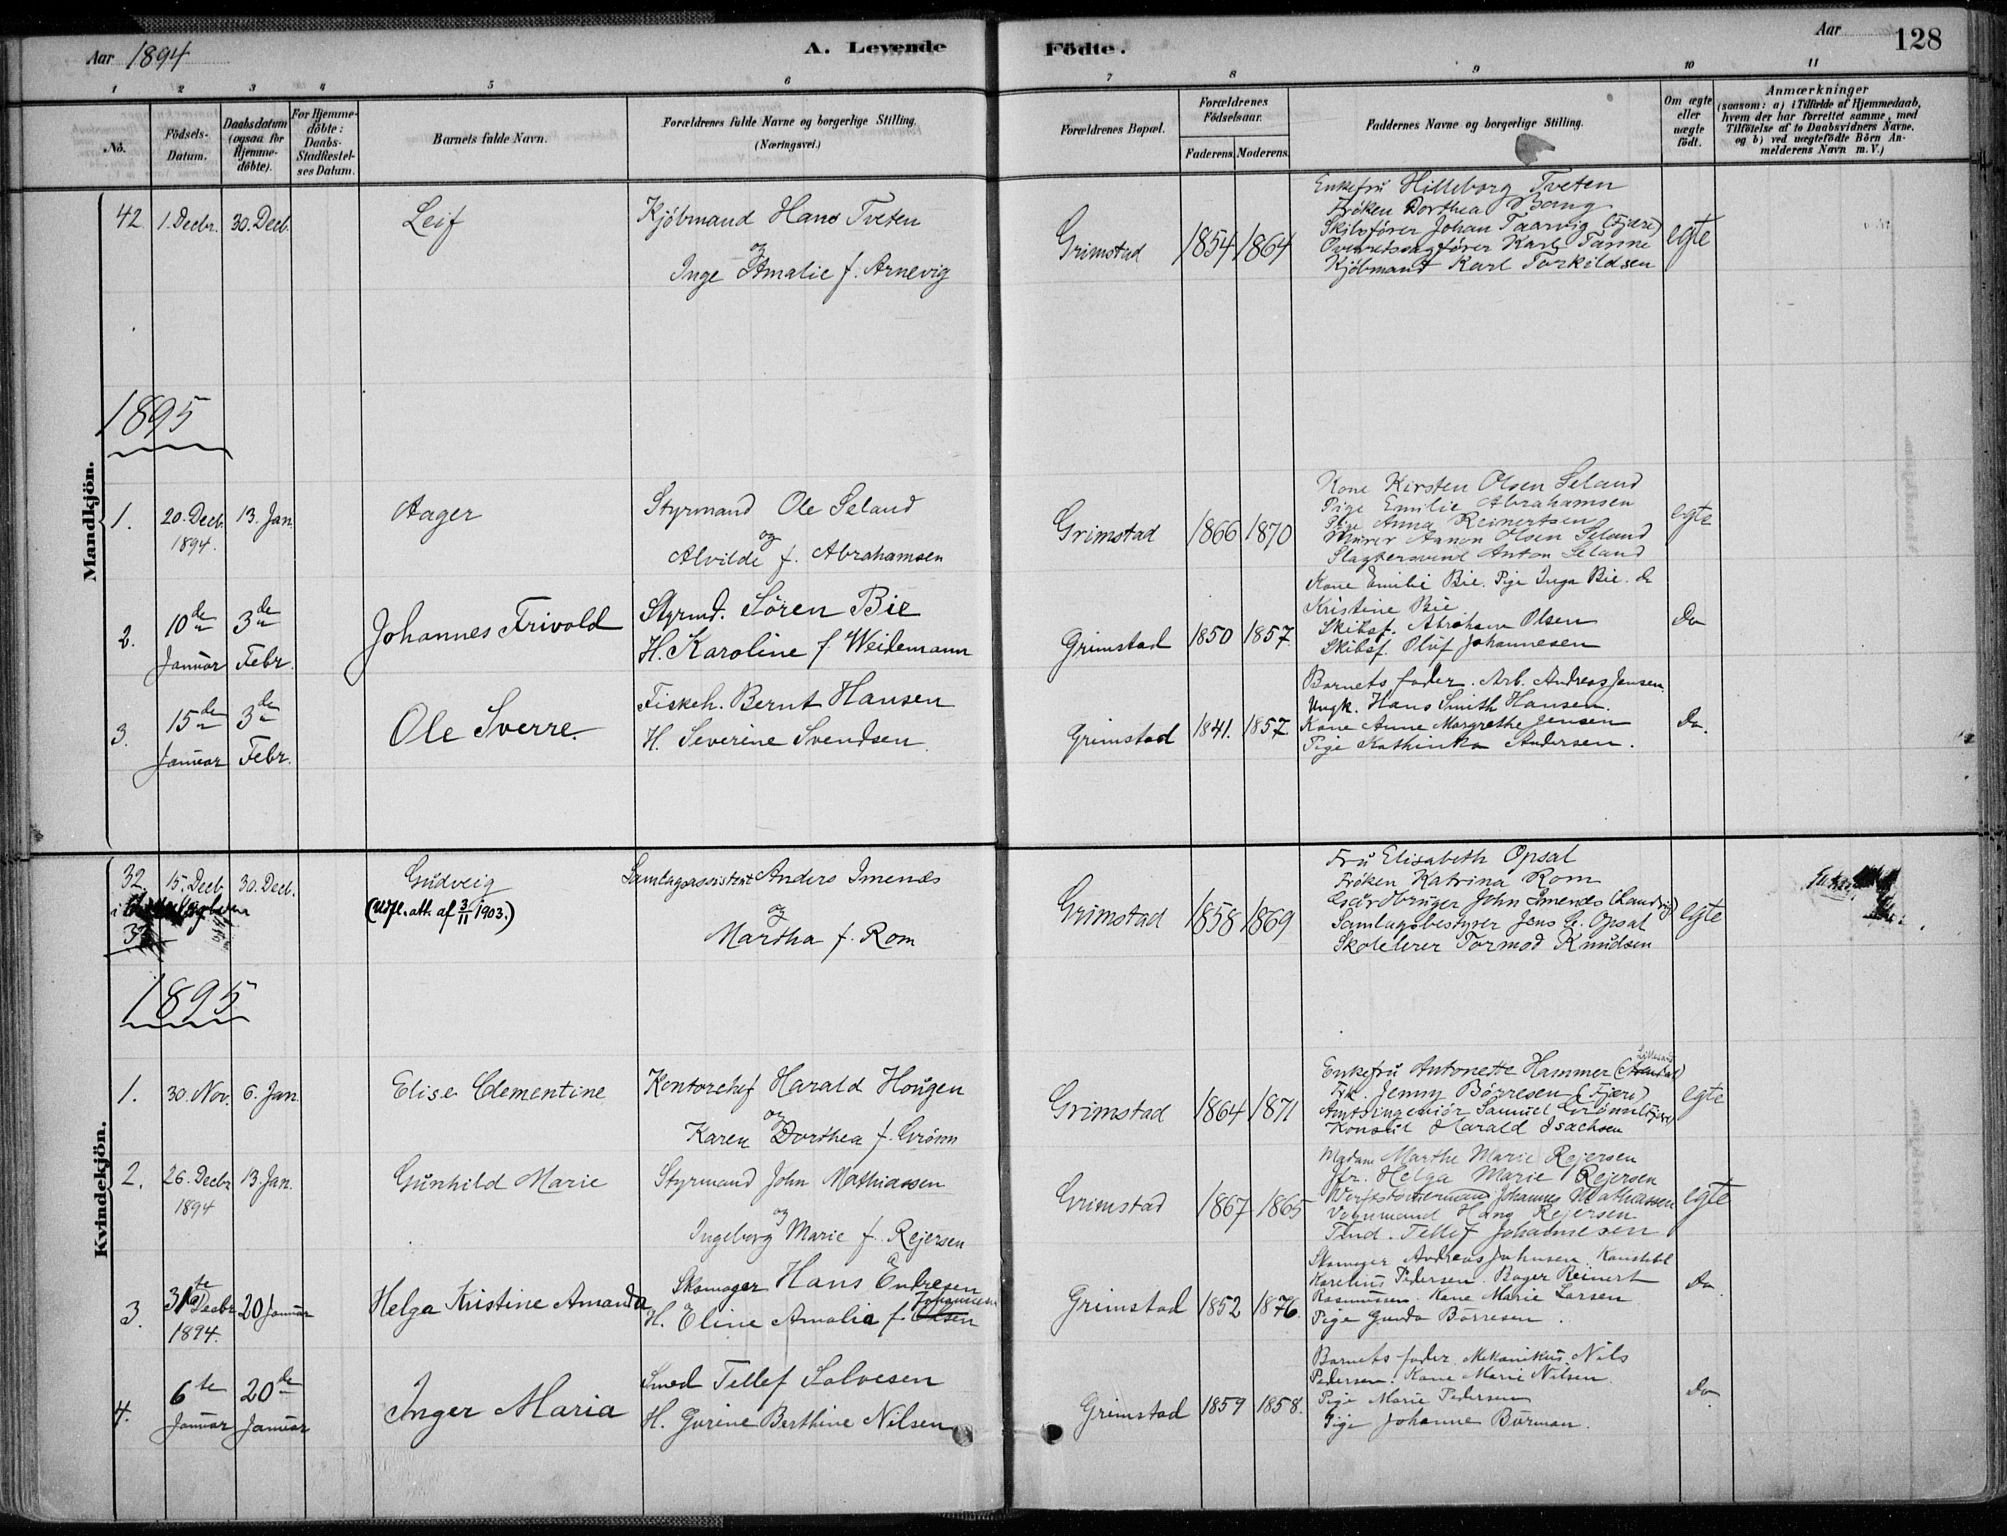 Aar 1894
A. Levende Födte.
Aar
128
1 2 3 4 5 6 7 8 9 10 11
No.
Födsels-Datum.
Daabsdatum (ogsaa for Hjemme-döbte).
For Hjemme-döbte: Daabs-Stadfestel-ses Datum.
Barnets fulde Navn.
Forældrenes fulde Navne og borgerlige Stilling. (Næringsvei.)
Forældrenes Bopæl.
Forældrenes Födselsaar.
Faderens. Moderens.
Faddernes Navne og borgerlige Stilling.
Om ægte eller uægte födt.
Anmærkninger
(saasom: a) i Tilfælde af Hjemmedaab,
hvem der har forrettet samme, med
Tilföielse af to Daabsvidners Navne.
og b) ved uægtefödte Börn An-
melderens Navn m. V.)
Mandkjön.
42. 1. Decbr. 30. Decb.
Leif
Kjöbmand Hans Tveten
og
Inge Amalie f. Arnevig
Grimstad 1854 1864
Enkefru Hilleborg Tveten
Fröken Dorthea Bang
Skibsförer Johan Taarvig (Fjære)
Overretssagförer Karl
Kjöbmand Karl Torkildsen
egte
1895
1. 20. Decb. 1894. 13. Jan.
Aager
Styrmand Ole Seland
og
Alvilde f. Abrahamsen
Grimstad 1866 1870
Kone Kirsten Olsen Seland
Pige Emilie Abrahamsen
Pige Anna Reinertsen
Murer Aanon Olsen Seland
Slagtersvend Anton Seland
egte
2. 10de Januar 3de Febr.
Johannes Frivold
Styrmd. Sören Bie
H. Karoline f Weidemann
Grimstad 1850 1857.
Kone Emilie Bie. Pige Inga Bie. do
Kristine Bie
Skibsf. Abraham Olsen
Skibsf. Oluf Johannesen
Do
3. 15de Januar 3de Febr.
Ole Sverre.
Fiskeh. Bernt Hansen
H. Severine Svendsen.
Grimstad 1841. 1857.
Barnets fader. Arb. Andreas Jensen.
Ungk. Hans Smith Hansen.
Kone Anne Margrethe Jensen
Pige Kathinka Andersen.
Do.
Kvindekjön.
32. 15. Decb. 30. Decb.
Gudveig
(Udfl. att. af 3/11 1903.)
Samlagsassistent Anders Imenes
og
Martha f. Rom
Grimstad 1858 1869
Fru Elisabeth Opsal
Fröken Katrina Rom
Gaardbruger John Imenes (Landvig)
Samlagsbestyrer Jens G. Opsal
Skolelærer Tormod Knudsen
egte
1895
1. 30. Nov. 6. Jan.
Elise Clementine
Kontorchef Harald Hougen
og
Karen Dorthea f. Grönn
Grimstad 1864 1871
Enkefru Antonette Hammer (Arendal)
Lillesand
Frk. Jenny Börresen (Fjære)
Amtsingeniör Samuel Grönn (Fjære)
Konsul Harald Isachsen
egte
2. 26. Decbr. 1894 13. Jan.
Gunhild Marie
Styrmand John Mathiassen
og
Ingeborg Marie f. Rejersen
Grimstad 1867 1865
Madam Marthe Marie Rejersen
Helga Marie Rejersen
Johannes Mathiassen
Vognmand Hans Rejersen
Tellef Johannesen
egte
3. 31te Decbr. 1894. 20 Januar
Helga Kristine Amanda
Skomager Hans Endresen
H. Eline Amalia f. Olsen
Johannesen
Grimstad 1852 1876.
Skomager Andreas Johnsen. Konstabl
Karelius Pedersen. Bager Reinert
Rasmussen. Kone Marie Larsen
Pige Gunda Börresen.
Do.
4. 6te Januar 20de Januar
Inger Maria
Smed Tellef Salvesen
H. Gurine Berthine Nilsen
Grimstad 1859 1858.
Barnets fader. Mekanikus Nils
Pedersen. Kone Marie Nilsen.
Pige Marie Pedersen
Pige Johanne Burman.
do.